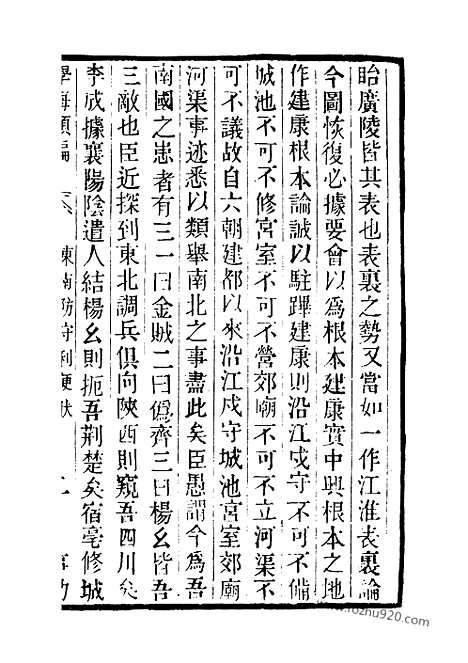 眙廣陵皆其表也表裏之勢又當如一作江淮表裏論
今圖恢復必據要會以爲根本建康實中興根本之地
作建康根本論誠以駐蹕建康則沿江戍守不可不備
城池不可不修宮室不可不營郊廟不可不立河渠不
可不議故自六朝建都以來沿江戍守城池宮室郊廟
河渠事迹悉以類舉南北之事盡此矣臣愚謂今爲吾
南國之患者有三一曰金賊二曰僞齊三曰楊幺皆吾
三敵也臣近探到東北調兵俱向陝西則窺吾四川矣
李成據襄陽陰遣人結楊幺則扼吾荆楚矣宿亳修城
學海類編
東南防守利便
www.rozhu920.com